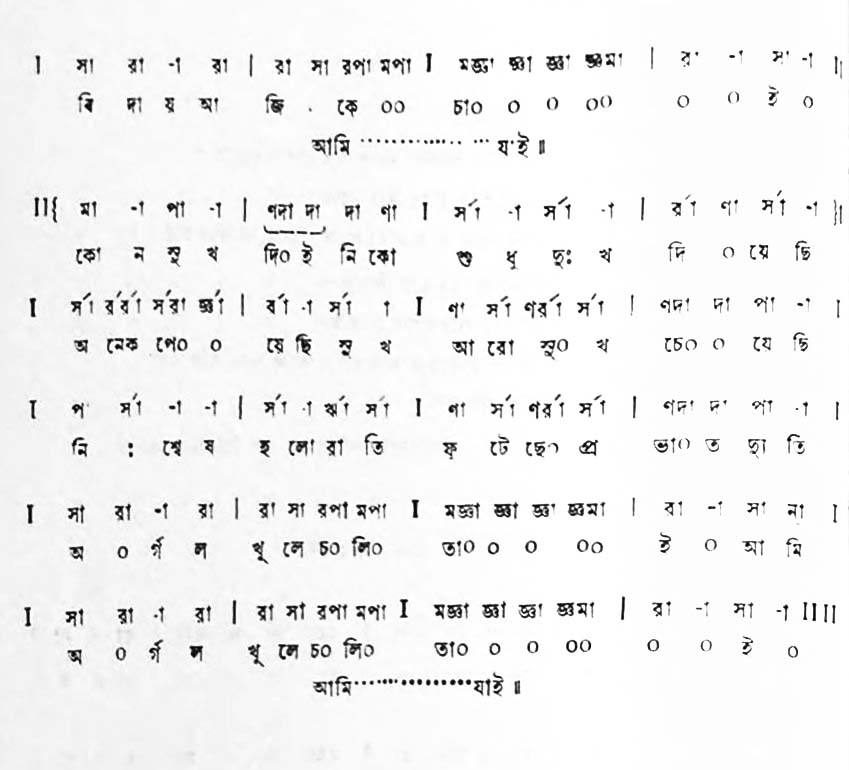 I সা রা -া রা | রা সা রপা মপা I মজ্ঞা জ্ঞা জ্ঞা জ্ঞমা | রা -া সা -া ||
বি দা য় আ জি . কে ০০ চা০ ০ ০ ০০ ০ ০ ই ০
আমি ................ যাই ॥
II{ মা -া পা -া | ণদা দা দা ণা I র্সা -া র্সা -া | র্রা ণা র্সা -া }|
কো ন সু খ দি০ ই নি কো শু ধু দুঃ খ দি ০ য়ে ছি
I র্সা র্রর্রা র্সরা র্জ্ঞা | র্রা -া র্সা া I ণা র্সা ণর্রা র্সা | ণদা দা পা -া |
অ নেক পে০ ০ য়ে ছি সু খ আ রো সু০ খ চে০ ০ য়ে ছি
I প র্সা -া -া | র্সা -া র্ঋা র্সা I ণা র্সা ণর্রা র্সা | ণদা দা পা -া |
নি : শ্বে ষ হ লো রা তি ফু টে ছে০ প্র ভা০ ত ছা তি
I সা রা -া রা | রা সা রপা মপা I মজ্ঞা জ্ঞা জ্ঞা জ্ঞমা | রা -া সা না I
অ ০ র্গ ল খু লে চ০ লি০ তা০ ০ ০ ০০ ই ০ আ মি
I সা রা -া রা | রা সা রপা মপা I মজ্ঞা জ্ঞা জ্ঞা জ্ঞমা | রা -া সা -া IIII
অ ০ র্গ ল খু লে চ০ লি০ তা০ ০ ০ ০০ ০ ০ ই ০
আমি..................যাই ॥